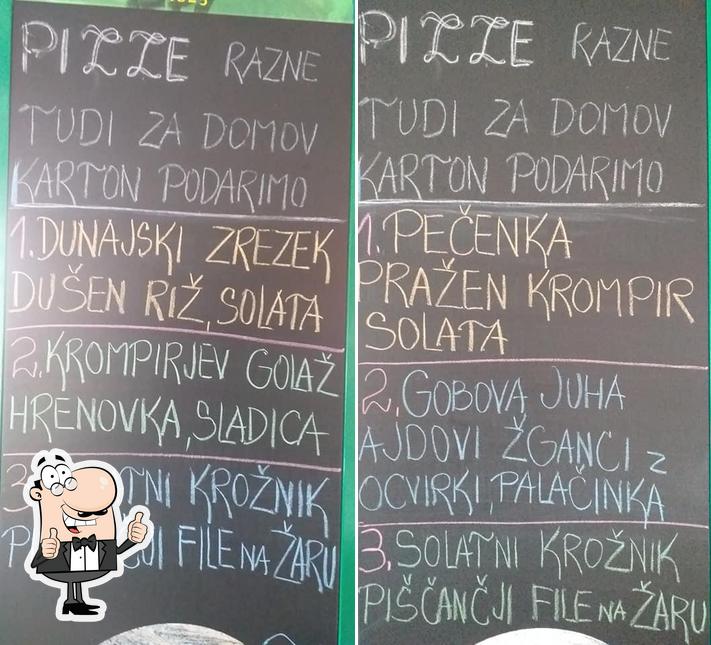 PIZZE RAZNE
TUDI ZA DOMOV
KARTON PODARIMO
1. DUNAJSKI ZREZEK
DUŠEN RIŽ, SOLATA
2. KROMPIRJEV GOLAŽ
HRENOVKA, SLADICA
3. TNI KROŽNIK
P JI FILE NA ŽARU
PIZZE RAZNE
TUDI ZA DOMOV
KARTON PODARIMO
1. PEČENKA
PRAŽEN KROMPIR
SOLATA
2. GOBOVA JUHA
AJDOVI ŽGANCI Z
OCVIRKI, PALAČINKA
3. SOLATNI KROŽNIK
PIŠČANČJI FILE NA ŽARU